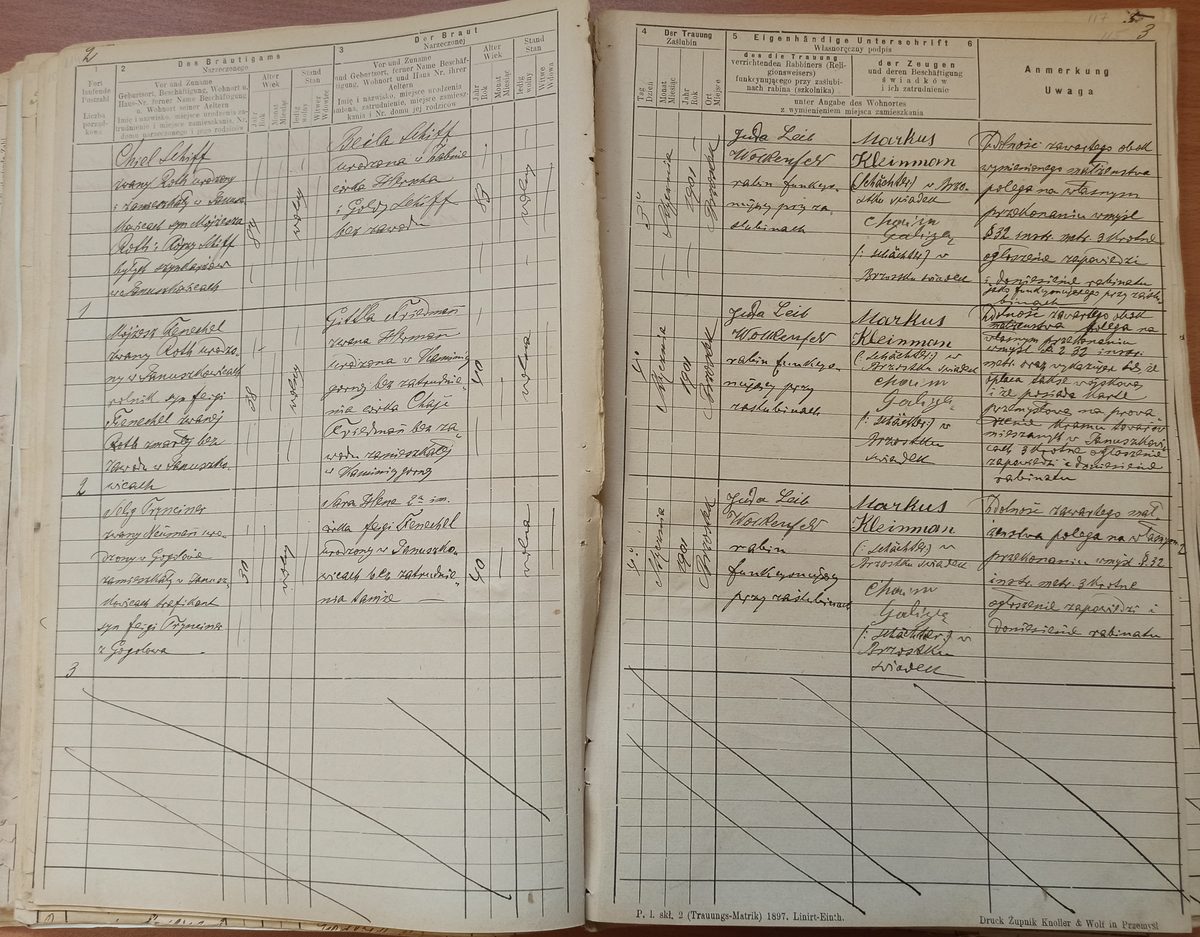 2
Fort-
laufende
Postzahl
Liczba
porząd-
kowa
2
Des Bräutigams
Narzeczonego
Vor und Zuname
Geburtsort, Beschäftigung, Wohnort u.
Haus-Nr. ferner Name Beschäftigung
u. Wohnort seiner Aeltern
Imię i nazwisko, miejsce urodzenia za-
trudnienie i miejsce zamieszkania, Nr.
domu narzeczonego i jego rodziców
Alter
Wiek
Jahr
Rok
Monat
Miesiąc
Stand
Stan
ledig
wolny
Witwer
Wdowiec
3
Der Braut
Narzeczonej
Vor und Zuname
und Geburtsort, ferner Name Beschäf-
tigung, Wohnort und Haus Nr. ihrer
Aeltern
Imię i nazwisko, miejsce urodzenia
zatrudnienie, miejsce zamiesz-
kania i Nr. domu jej rodziców
Alter
Wiek
Jahr
Rok
Monat
Miesiąc
Stand
Stan
ledig
wolny
Witwe
Wdowa
Chiel Schiff
zwany Roth urodzony
i zamieszkały w Janusz-
kowicach syn Mojżesza
Roth i Rózy Schiff
byłych szynkarzów
w Januszkowicach
wolny
Beila Schiff
urodzona w Żabnie
córka Herscha
i Goldy Schiff
bez zawodu
wolny
1
Mojżesz Feneschel
zwany Roth urodzo-
ny w Januszkowicach
rolnik syn Feigi
Feneschel zwanej
Roth zmarłej bez
zawodu w Januszko-
wicach
38
wolny
Gittla Friedman
zwana Herman
urodzona w Kamienicy
górnej bez zatrudnie-
nia córka Chaje
Friedman bez za-
wodu zamieszkałej
w Kamienicy górnej
40
wolna
2
Selig Trynciner
zwany Neuman uro-
dzony w Gogołowie
zamieszkały w Janusz-
kowicach trafikant
syn Feigi Trynciner
z Gogołowa
30
wolny
Sara Hena 2ch im.
córka Feigi Feneschel
urodzony w Januszko-
wicach bez zatrudnie-
nia tamże
40
wolna
3
117
3
4
Der Trauung
Zaślubin
Tag
Dzień
Monat
Miesiąc
Jahr
Rok
Ort
Miejsce
5
Eigenhändige Unterschrift
Własnoręczny podpis
des die Trauung
verrichtenden Rabbiners (Reli-
gionsweisers)
funkcyonującego przy zaślubi-
nach rabina (szkolnika)
der Zeugen
und deren Beschäftigung
świadków
i ich zatrudnienie
unter Angabe des Wohnortes
z wymienieniem miejsca zamieszkania
6
Anmerkung
Uwaga
Stycznia
1901
Brzostek
Juda Leib
Wolkenfeld
rabin funkcyo-
nujący przy za-
ślubinach
Markus
Kleinman
(Schächter) w Brzo-
stku świadek
Chaim
Galizę
(: Schächter:) w
Brzostku świadek
Zdolność zawartego obok
wymienionego małżeństwa
polega na własnym
przekonaniu w myśl
§ 32 instr. metr. 3 krotne
ogłoszenie zapowiedzi
i doniesienie rabinatu
jako funkcyonującego przy zaślu-
binach
Stycznia
1901
Brzostek
Juda Leib
Wolkenfeld
rabin funkcyo-
nujący przy
zaślubinach
Markus
Kleinman
(: Schächter:) w
Brzostku świadek
Chaim
Galizę
(: Schächter:) w
Brzostku
świadek
Zdolność zawartego obok
małżeństwa polega na
własnym przekonaniu
w myśl § 32 instr.
metr. oraz wykazując się że
opłaca taksę wojskową
i że posiada kartę
przemysłową na prowa-
dzenie kramu towarów
mieszanych w Januszkowi-
cach 3 krotne ogłoszenie
zapowiedzi i doniesienie
rabinatu
Stycznia
1901
Brzostek
Juda Leib
Wolkenfeld
rabin
funkcyonujący
przy zaślubinach
Markus
Kleinman
(: Schächter:) w
Brzostku świadek
Chaim
Galizę
(: Schächter:) w
Brzostku
świadek
Zdolność zawartego mał-
żeństwa polega na własnym
przekonaniu w myśl § 32
instr. metr. 3 krotne
ogłoszenie zapowiedzi i
doniesienie rabinatu
P. l. skł. 2 (Trauungs-Matrik) 1897. Linirt-Einth.
Druck Żupnik Knoller & Wolf in Przemyśl